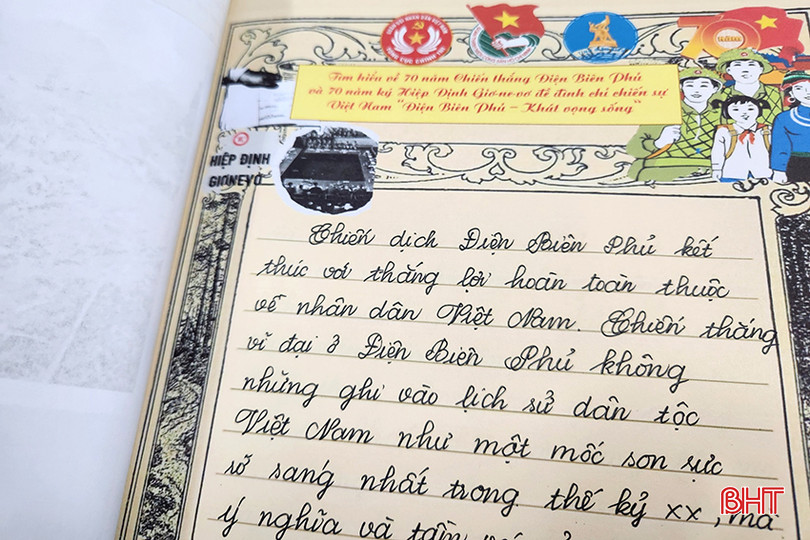 70
Tìm hiểu về 70 năm Chiến thắng Điện Biên Phủ
và 70 năm ký Hiệp Định Giơ-ne-vơ để đình chỉ chiến sự
Việt Nam "Điện Biên Phủ - Khát vọng sống"
HIỆP ĐỊNH
GIƠNEVƠ
Chiến dịch Điện Biên Phủ kết
thúc với thắng lợi hoàn toàn thuộc
về nhân dân Việt Nam. Chiến thắng
vĩ đại ở Điện Biên Phủ không
những ghi vào lịch sử dân tộc
Việt Nam như một mốc son rực
rỡ sáng nhất trong thế kỷ XX, mà
ý nghĩa và tầm
BHT